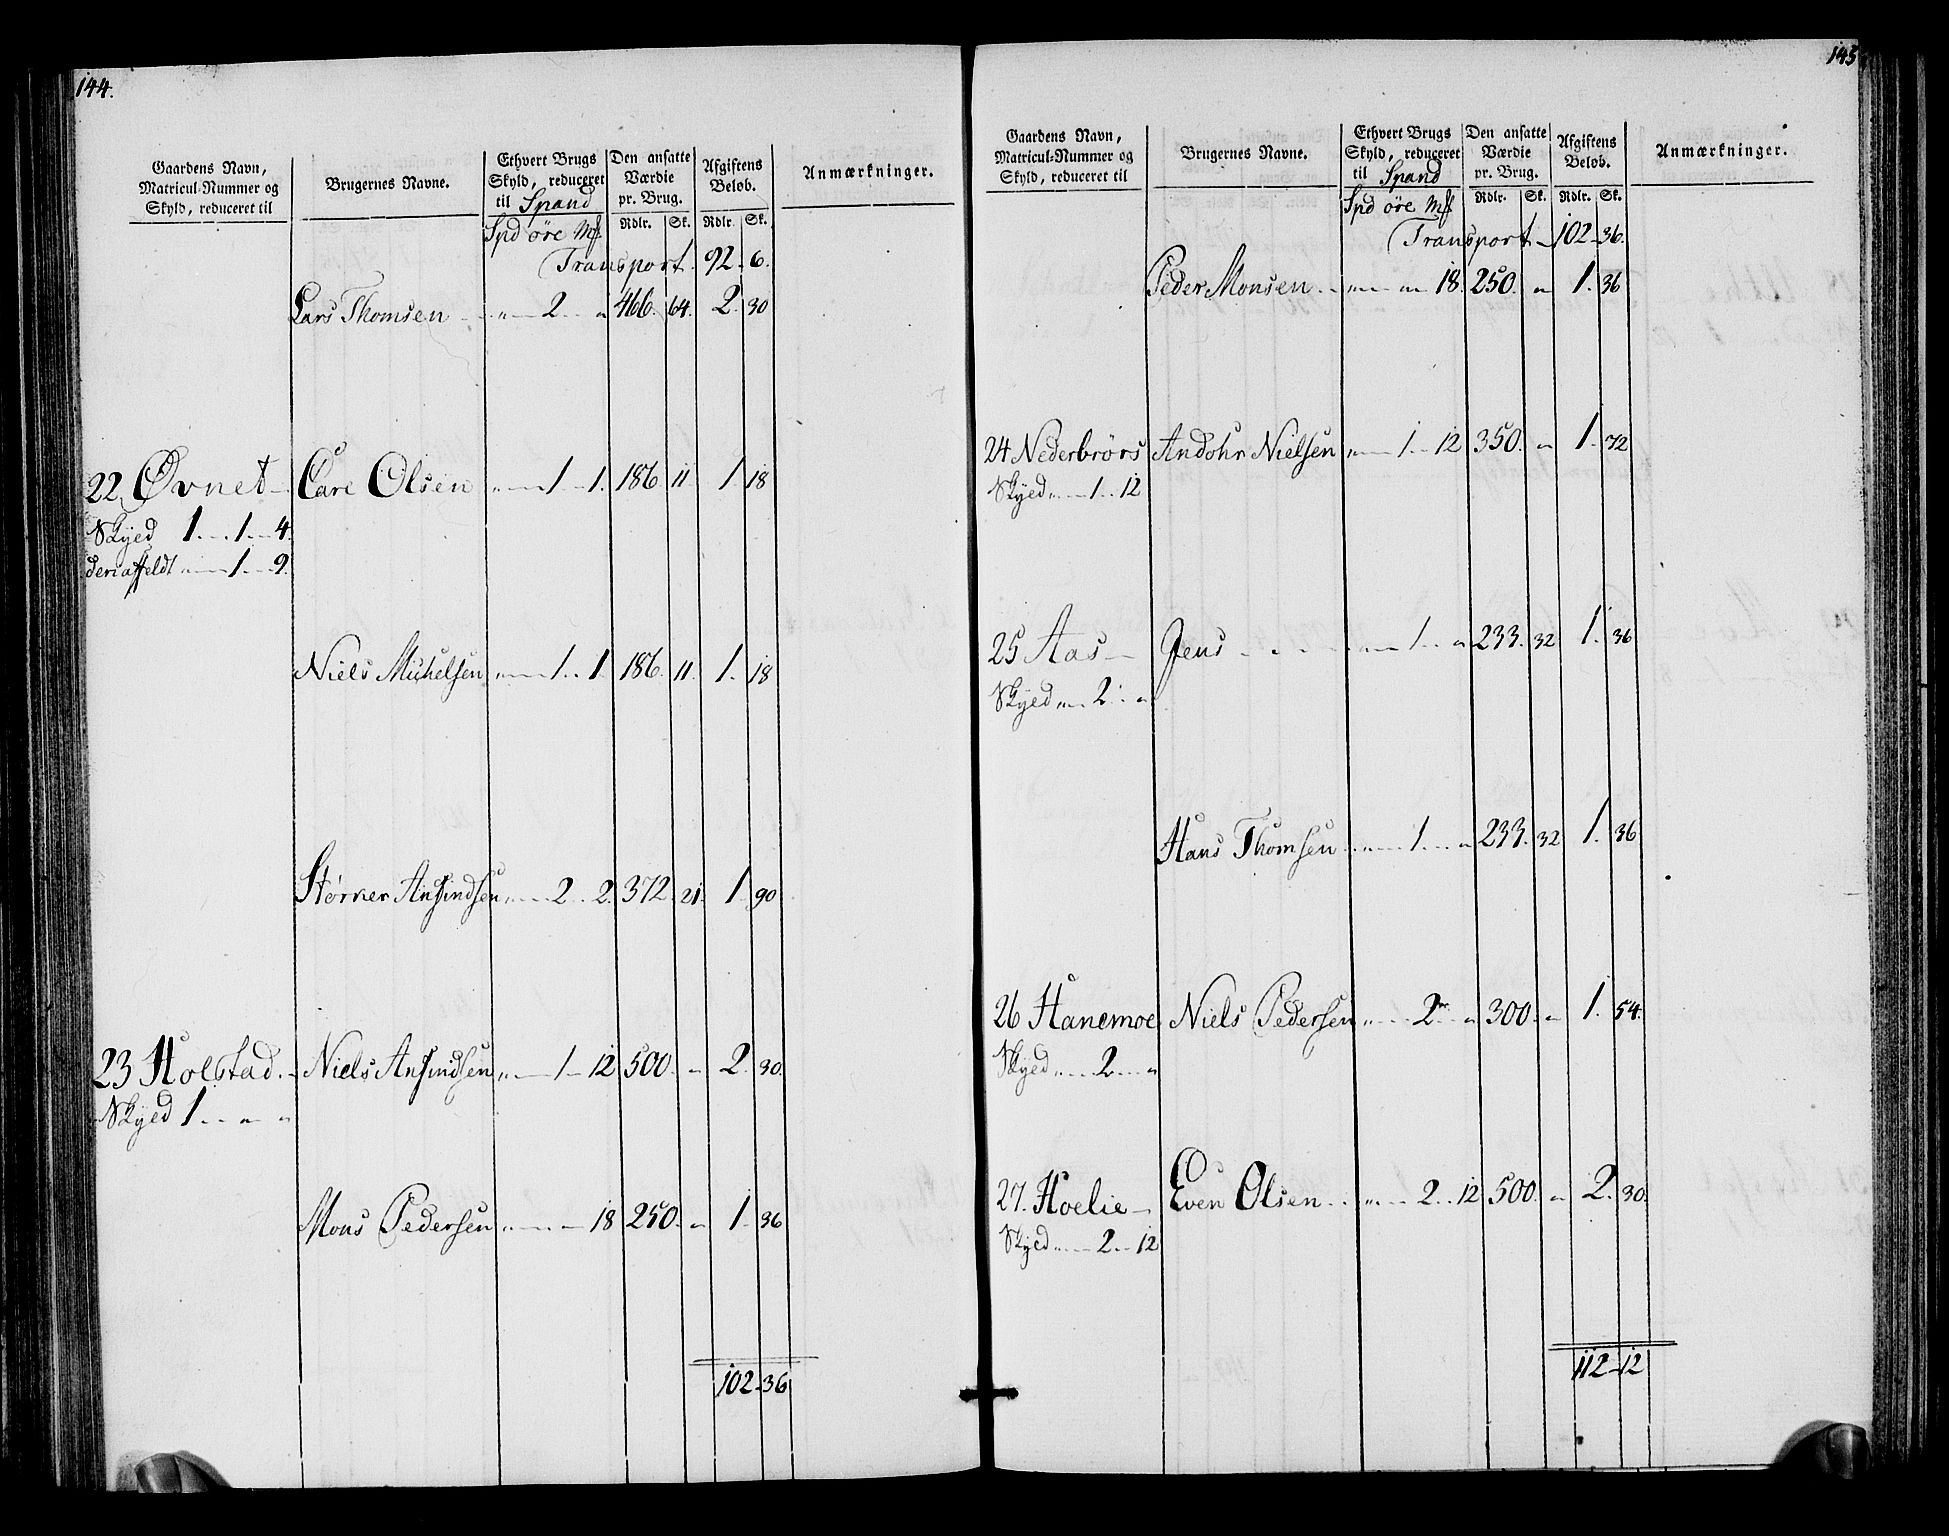 144.
Gaardens Navn, Matricul-Nummer og Skyld, reduceret til
Brugernes Navne.
Ethvert Brugs Skyld, reduceret til Spand
Den ansatte Værdie pr. Brug.
Afgiftens Beløb.
Anmærkninger.
Spd øre Mk Rdlr. Sk. Rdlr. Sk.
Transport. 92. 6.
Lars Thomsen - - „ - 2 - „ 466. 64. 2. 30
22 Øvnet - Care Olsen „ - 1 - 1. 186 11 1 18
Skyed 1 - 1 - 4.
deri affeldt „ - 1 - 9.
Niels Michelsen „ - 1 - 1. 186. 11. 1. 18
Størker Ansindsen „ - 2 - 2. 372. 21. 1 90
23 Holstad. - Niels Ansindsen „ - 1 - 12 500. „ 2. 30.
Skyed 1 - „ - „
Mons Pedersen „ - „ - 18 250. „ 1. 36
102. 36
145
Gaardens Navn, Matricul-Nummer og Skyld, reduceret til
Brugernes Navne.
Ethvert Brugs Skyld, reduceret til Spand
Den ansatte Værdie pr. Brug.
Afgiftens Beløb.
Anmærkninger.
Spd øre Mk Rdlr. Sk. Rdlr. Sk.
Transport - 102. 36.
Peder Monsen - „ - „ - 18. 250. „ 1. 36
24 Nederbrørs Andohr Nielsen „ - 1 - 12 350. „ 1. 72
Skyed „ - 1 - 12
25 Aas - Jens - - - „ - 1 - „ 233. 32 1. 36
Skyed „ - 2 - „
Hans Thomsen - „ - 1 - „ 233. 32 1. 36
26 Hanemoe Niels Pedersen „ - 2 - „ 300. „ 1. 54.
Skyed „ - 2 - „
27. Hoelie - Even Olsen - „ - 2 - 12 500. „ 2. 30.
Skyed „ - 2 - 12
112 - 12